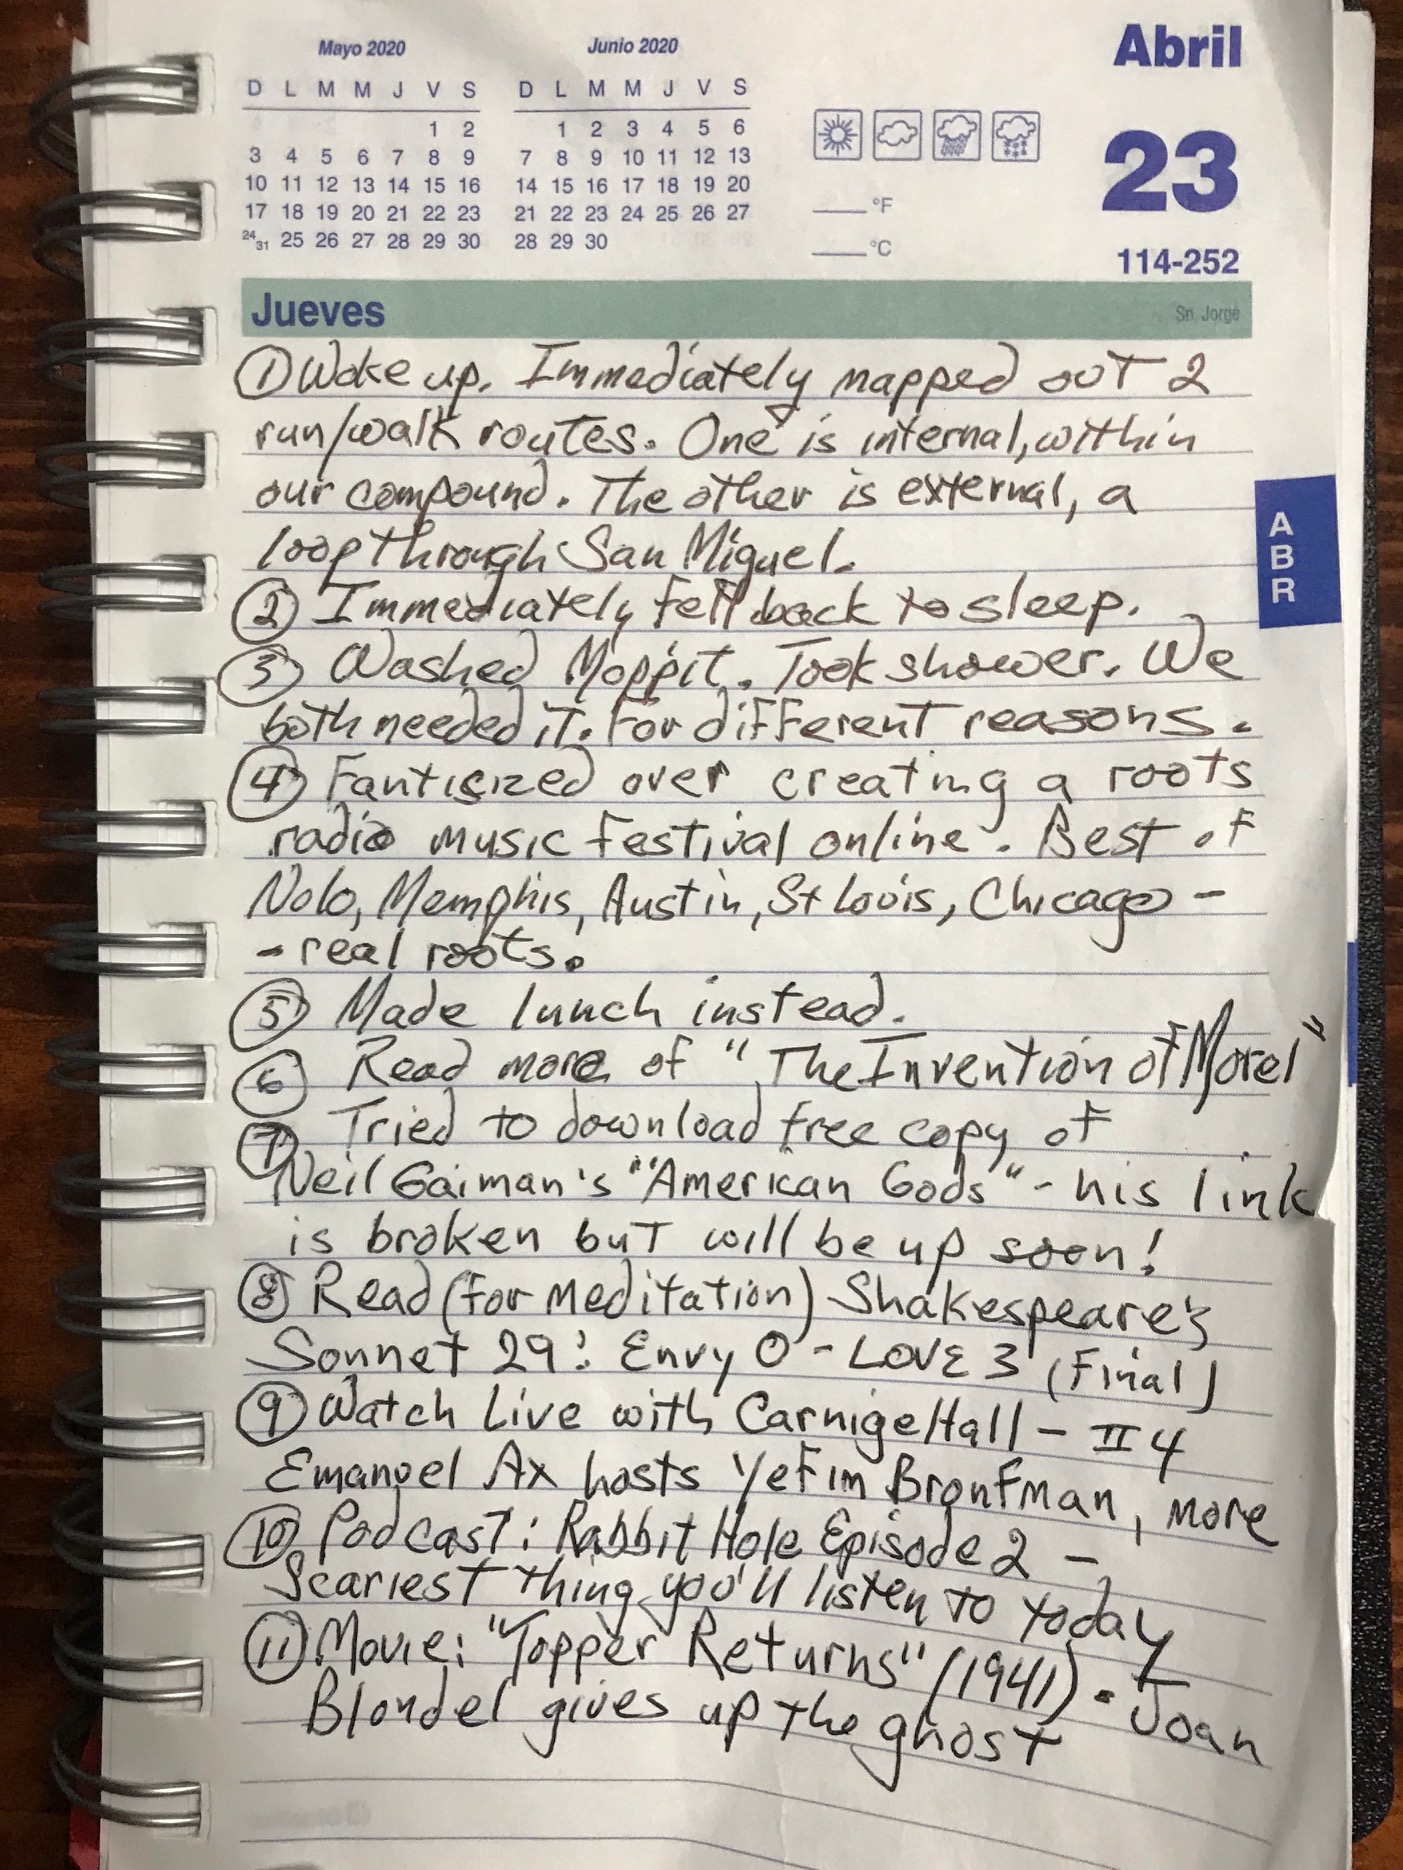 Mayo 2020
D L M M J V S
1 2
3 4 5 6 7 8 9
10 11 12 13 14 15 16
17 18 19 20 21 22 23
24/31 25 26 27 28 29 30
Junio 2020
D L M M J V S
1 2 3 4 5 6
7 8 9 10 11 12 13
14 15 16 17 18 19 20
21 22 23 24 25 26 27
28 29 30
°F
°C
Abril
23
114-252
Jueves
Sn. Jorge
① Woke up. Immediately mapped out 2
run/walk routes. One is internal, within
our compound. The other is external, a
loop through San Miguel.
② Immediately fell back to sleep.
③ Washed Moppit. Took shower. We
both needed it. For different reasons.
④ Fanticized over creating a roots
radio music festival online. Best of
Nolo, Memphis, Austin, St Louis, Chicago -
- real roots.
⑤ Made lunch instead.
⑥ Read more of "The Invention of Morel"
⑦ Tried to download free copy of
Neil Gaiman's "American Gods" - his link
is broken but will be up soon!
⑧ Read (for meditation) Shakespeare's
Sonnet 29: Envy 0 - LOVE 3 (Final)
⑨ Watch Live with Carnige Hall - II 4
Emanuel Ax hosts Yefim Bronfman, more
⑩ Podcast: Rabbit Hole Episode 2 -
Scariest thing you'll listen to today
⑪ Movie: "Topper Returns" (1941). Joan
Blondel gives up the ghost
A
B
R